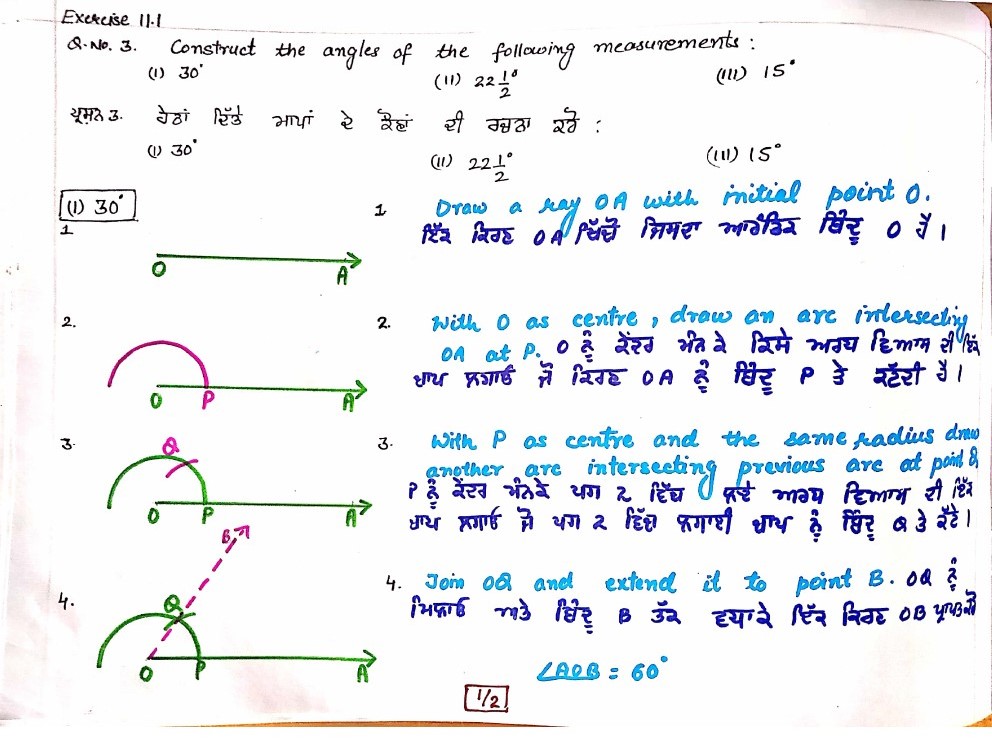 Exercise 11.1
Q.No. 3. Construct the angles of the following measurements :
(I) 30° (II) 22 1/2° (III) 15°
ਪ੍ਰਸ਼ਨ 3. ਹੇਠਾਂ ਦਿੱਤੇ ਮਾਪਾਂ ਦੇ ਕੋਣਾਂ ਦੀ ਰਚਨਾ ਕਰੋ :
(I) 30° (II) 22 1/2° (III) 15°
(I) 30°
1
O A
1 Draw a ray OA with initial point O.
ਇੱਕ ਕਿਰਣ OA ਖਿੱਚੋ ਜਿਸਦਾ ਆਰੰਭਿਕ ਬਿੰਦੂ O ਹੈ।
2.
O P A
2. With O as centre, draw an arc intersecting
OA at P. O ਨੂੰ ਕੇਂਦਰ ਮੰਨ ਕੇ ਕਿਸੇ ਅਰਧ ਵਿਆਸ ਦੀ ਇੱਕ
ਚਾਪ ਲਗਾਓ ਜੋ ਕਿਰਣ OA ਨੂੰ ਬਿੰਦੂ P ਤੇ ਕੱਟਦੀ ਹੈ।
3.
Q
O P A
3. With P as centre and the same radius draw
another arc intersecting previous arc at point Q
P ਨੂੰ ਕੇਂਦਰ ਮੰਨਕੇ ਪਗ 2 ਵਿੱਚ ਲਏ ਅਰਧ ਵਿਆਸ ਦੀ ਇੱਕ
ਚਾਪ ਲਗਾਓ ਜੋ ਪਗ 2 ਵਿੱਚ ਲਗਾਈ ਚਾਪ ਨੂੰ ਬਿੰਦੂ Q ਤੇ ਕੱਟੇ।
4.
B
Q
O P A
4. Join OQ and extend it to point B. OQ ਨੂੰ
ਮਿਲਾਓ ਅਤੇ ਬਿੰਦੂ B ਤੱਕ ਵਧਾਕੇ ਇੱਕ ਕਿਰਣ OB ਪ੍ਰਾਪਤ ਕਰੋ
∠AOB = 60°
1/2